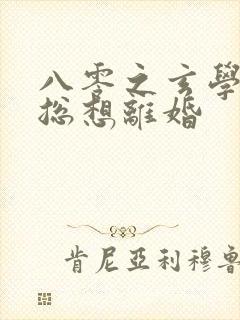 八零之玄學
總想離婚
肯尼亞利穆魯